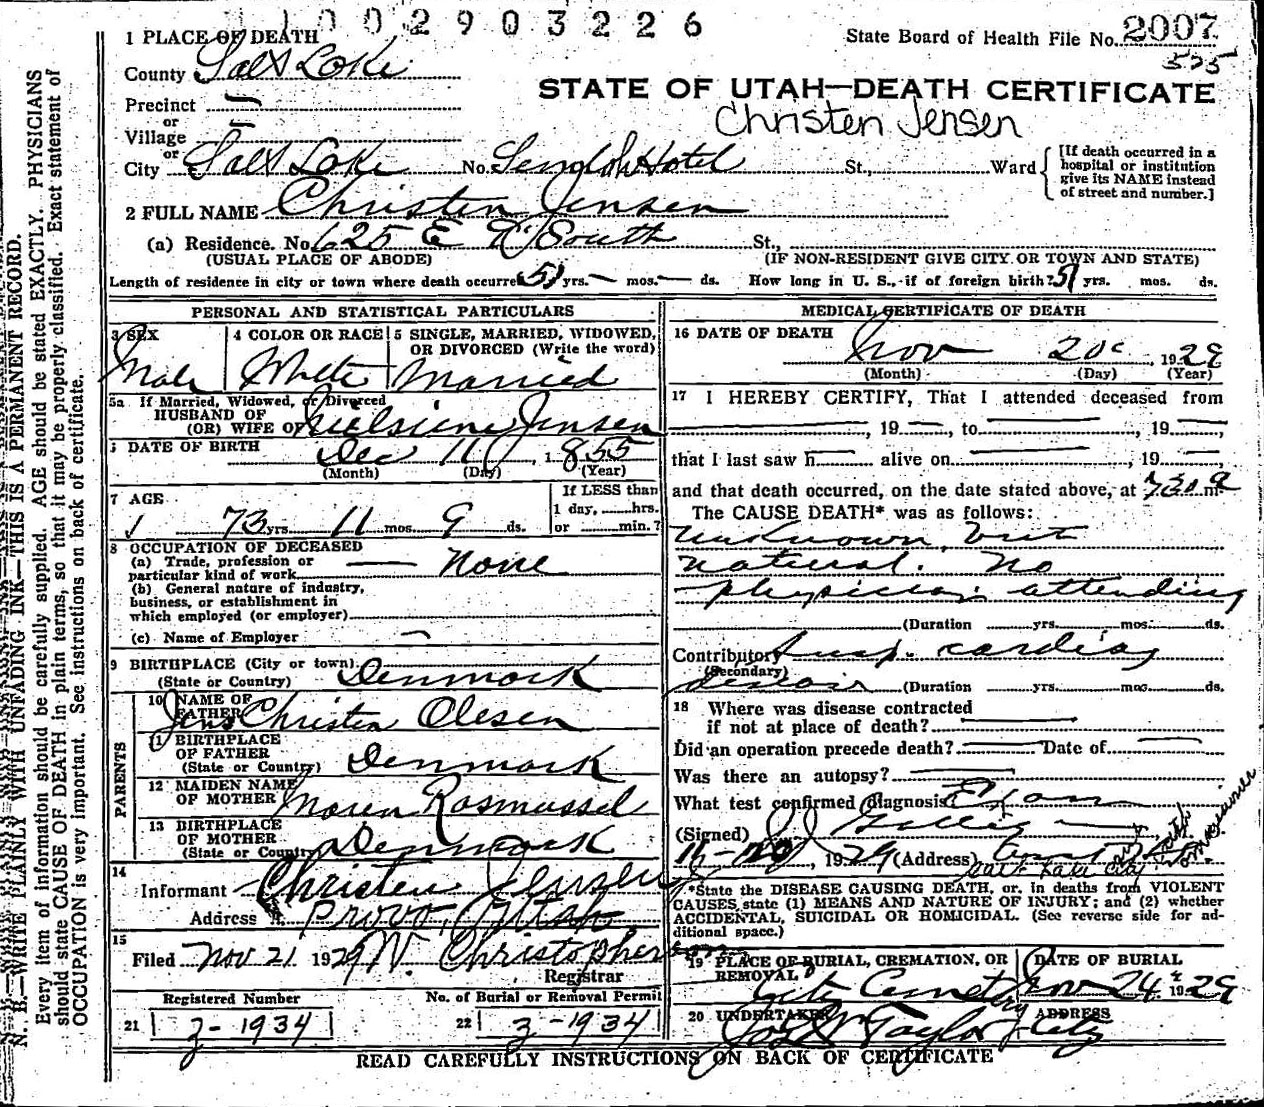 1002903226
1 PLACE OF DEATH
State Board of Health File No. 2007
525
County Salt Lake
STATE OF UTAH—DEATH CERTIFICATE
Christen Jensen
Precinct —
or
Village —
or
City Salt Lake No. Hotel St., Ward
[If death occurred in a
hospital or institution
give its NAME instead
of street and number.]
2 FULL NAME Christen Jensen
(a) Residence. No. 625 E South St.,
(USUAL PLACE OF ABODE) (IF NON-RESIDENT GIVE CITY OR TOWN AND STATE)
Length of residence in city or town where death occurre 51 yrs. — mos. — ds. How long in U. S., if of foreign birth? 51 yrs. mos. ds.
PERSONAL AND STATISTICAL PARTICULARS
3 SEX
Male
4 COLOR OR RACE
White
5 SINGLE, MARRIED, WIDOWED,
OR DIVORCED (Write the word)
Married
5a If Married, Widowed, or Divorced
HUSBAND OF
(OR) WIFE OF Nielsine Jensen
6 DATE OF BIRTH
Dec 11, 1855
(Month) (Day) (Year)
7 AGE
73 yrs 11 mos 9 ds.
If LESS than
1 day, hrs.
or min.?
8 OCCUPATION OF DECEASED
(a) Trade, profession or
particular kind of work — None
(b) General nature of industry,
business, or establishment in
which employed (or employer)
(c) Name of Employer —
9 BIRTHPLACE (City or town)
(State or Country) Denmark
PARENTS
10 NAME OF
FATHER Jens Christen Olesen
11 BIRTHPLACE
OF FATHER
(State or Country) Denmark
12 MAIDEN NAME
OF MOTHER Maren
13 BIRTHPLACE
OF MOTHER
(State or Country) Denmark
14
Informant Christen Jensen
Address Provo, Utah
15
Filed Nov 21 1929 Christopherson
Registrar
Registered Number No. of Burial or Removal Permit
21 Z-1934 22 Z-1934
MEDICAL CERTIFICATE OF DEATH
16 DATE OF DEATH
Nov 20 1929
(Month) (Day) (Year)
17 I HEREBY CERTIFY, That I attended deceased from
—, 19 —, to —, 19 —,
that I last saw h — alive on —, 19 —,
and that death occurred, on the date stated above, at 730 a m.
The CAUSE DEATH* was as follows:
Unknown but
natural. No
physician attending
(Duration yrs. mos. ds.
Contributory Susp. cardiac
(Secondary)
(Duration yrs. mos. ds.
18 Where was disease contracted
if not at place of death? —
Did an operation precede death? — Date of —
Was there an autopsy? —
What test confirmed diagnosis Exam
(Signed)
11-20, 1929 (Address)
Salt Lake City
*State the DISEASE CAUSING DEATH, or, in deaths from VIOLENT
CAUSES, state (1) MEANS AND NATURE OF INJURY; and (2) whether
ACCIDENTAL, SUICIDAL OR HOMICIDAL. (See reverse side for ad-
ditional space.)
19 PLACE OF BURIAL, CREMATION, OR
REMOVAL
City Cemetery
DATE OF BURIAL
Nov 24 1929
20 UNDERTAKER
Jos Wm Taylor
ADDRESS
City
READ CAREFULLY INSTRUCTIONS ON BACK OF CERTIFICATE
N. B.—WRITE PLAINLY WITH UNFADING INK—THIS IS A PERMANENT RECORD.
Every item of information should be carefully supplied. AGE should be stated EXACTLY. PHYSICIANS
should state CAUSE OF DEATH in plain terms, so that it may be properly classified. Exact statement of
OCCUPATION is very important. See instructions on back of certificate.